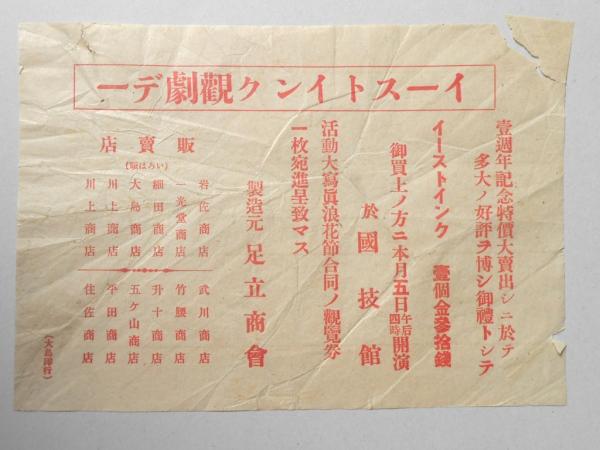 イーストインク觀劇デー
壹週年記念特價大賣出シニ於テ
多大ノ好評ヲ博シ御禮トシテ
イーストインク 壹個金參拾錢
御買上ノ方ニ本月五日午后四時開演
於國技館
活動大寫眞浪花節合同ノ觀覽券
一枚宛進呈致マス
製造元 足立商會
販賣店
(いろは順)
岩佐商店
一光堂商店
細田商店
大島商店
川上商店
川上商店
武川商店
竹腰商店
升十商店
五ケ山商店
平田商店
住佐商店
(大島印行)